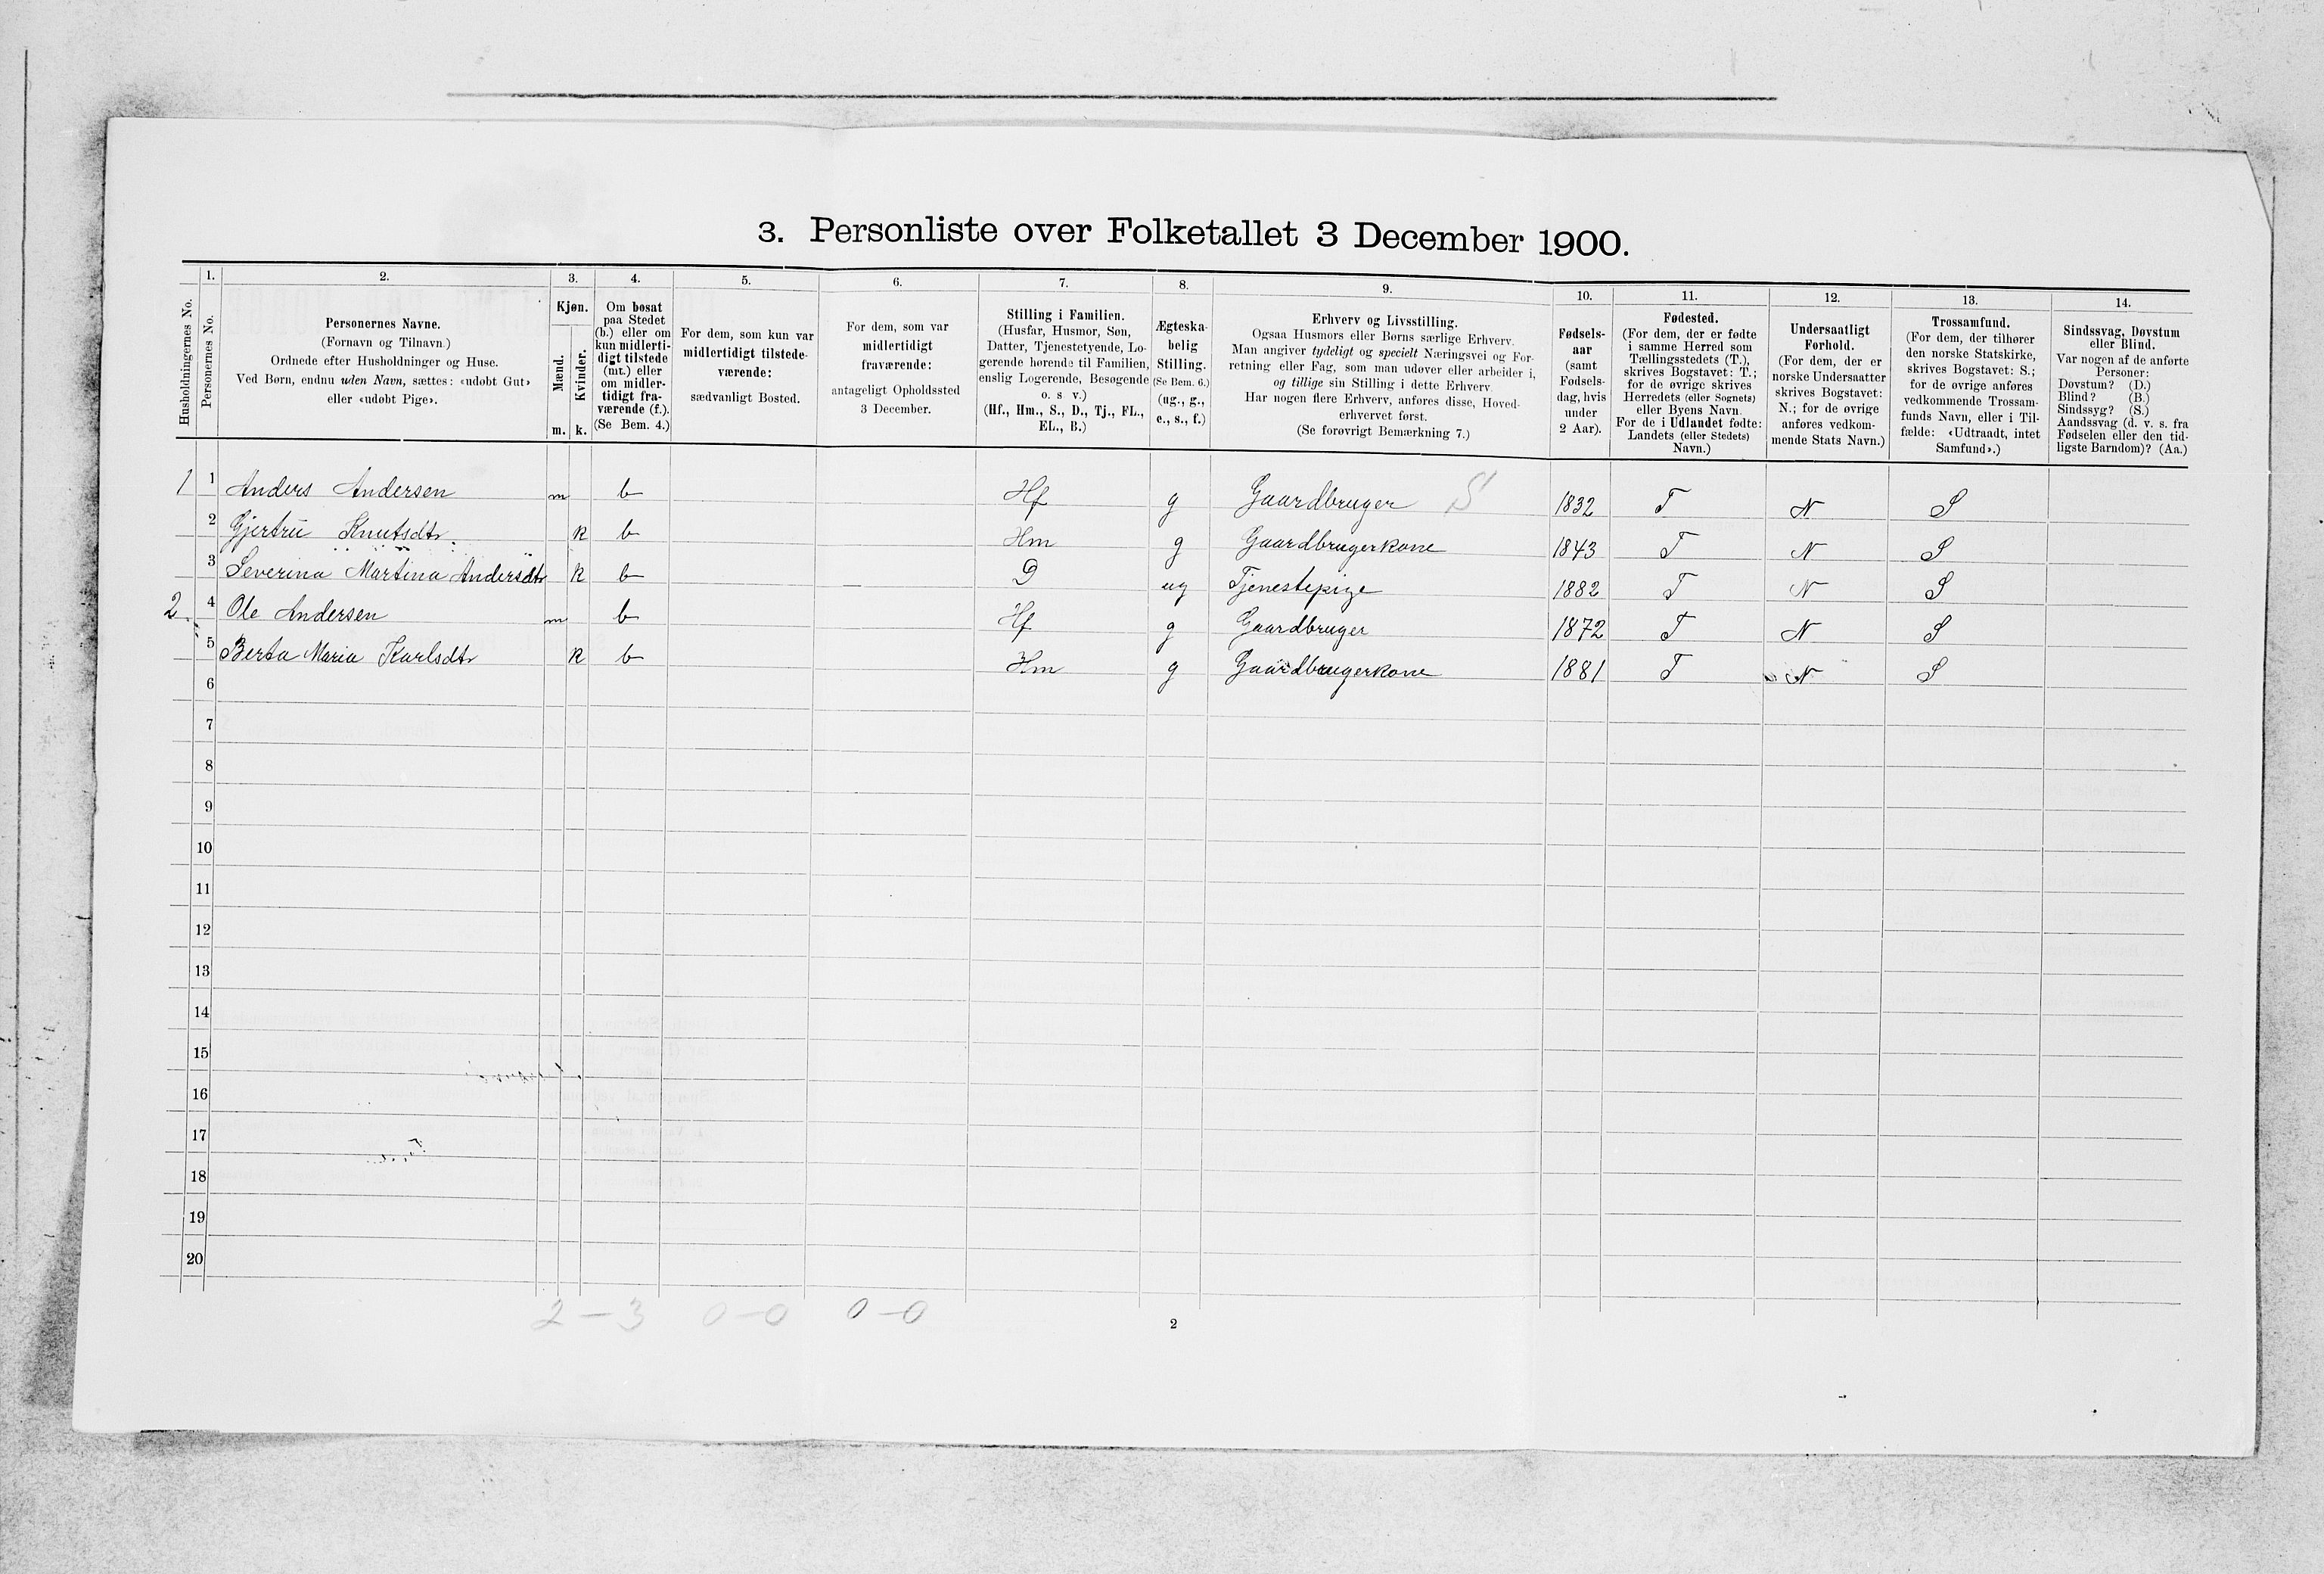 3. Personliste over Folketallet 3 December 1900.
Husholdningernes No.
1.
Personernes No.
2.
Personernes Navne.
(Fornavn og Tilnavn.)
Ordnede efter Husholdninger og Huse.
Ved Børn, endnu uden Navn, sættes: «udøbt Gut»
eller «udøbt Pige».
3.
Kjøn.
Mænd.
m.
Kvinder.
k.
4.
Om bosat
paa Stedet
(b.) eller om
kun midlerti-
digt tilstede
(mt.) eller
om midler-
tidigt fra-
værende (f.).
(Se Bem. 4.)
5.
For dem, som kun var
midlertidigt tilstede-
værende:
sædvanligt Bosted.
6.
For dem, som var
midlertidigt
fraværende:
antageligt Opholdssted
3 December.
7.
Stilling i Familien.
(Husfar, Husmor, Søn,
Datter, Tjenestetyende, Lo-
gerende hørende til Familien,
enslig Logerende, Besøgende
o. s v.)
(Hf., Hm., S., D., Tj., FL.,
EL., B.)
8.
Ægteska-
belig
Stilling.
(Se Bem. 6.)
(ug., g.,
e., s., f.)
9.
Erhverv og Livsstilling.
Ogsaa Husmors eller Børns særlige Erhverv.
Man angiver tydeligt og specielt Næringsvei og For-
retning eller Fag, som man udøver eller arbeider i,
og tillige sin Stilling i dette Erhverv.
Har nogen flere Erhverv, anføres disse, Hoved-
erhvervet først.
(Se forøvrigt Bemærkning 7.)
10.
Fødsels-
aar
(samt
Fødsels-
dag, hvis
under
2 Aar).
11.
Fødested.
(For dem, der er fødte
i samme Herred som
Tællingsstedets (T.),
skrives Bogstavet: T.;
for de øvrige skrives
Herredets (eller Sognets)
eller Byens Navn.
For de i Udlandet fødte:
Landets (eller Stedets)
Navn.)
12.
Undersaatligt
Forhold.
(For dem, der er
norske Undersaatter
skrives Bogstavet:
N.; for de øvrige
anføres vedkom-
mende Stats Navn.)
13.
Trossamfund.
(For dem, der tilhører
den norske Statskirke,
skrives Bogstavet: S.;
for de øvrige anføres
vedkommende Trossam-
funds Navn, eller i Til-
fælde: «Udtraadt, intet
Samfund».)
14.
Sindssvag, Døvstum
eller Blind.
Var nogen af de anførte
Personer:
Døvstum? (D.)
Blind? (B.)
Sindssyg? (S.)
Aandssvag (d. v. s. fra
Fødselen eller den tid-
ligste Barndom)? (Aa.)
1 1 Anders Andersen m b Hf g Gaardbruger S 1832 T N S
2 Gjertru Knutsdtr. k b Hm g Gaardbrugerkone 1843 T N S
3 Severina Martina Andersdtr k b D ug Tjenestepige 1882 T N S
2. 4 Ole Andersen m b Hf g Gaardbruger 1872 T N S
5 Berta Maria Karlsdtr k b Hm g Gaardbrugerkone 1881 T N S
6
7
8
9
10
11
12
13
14
15
16
17
18
19
20
2 — 3 0 — 0 0 — 0
2